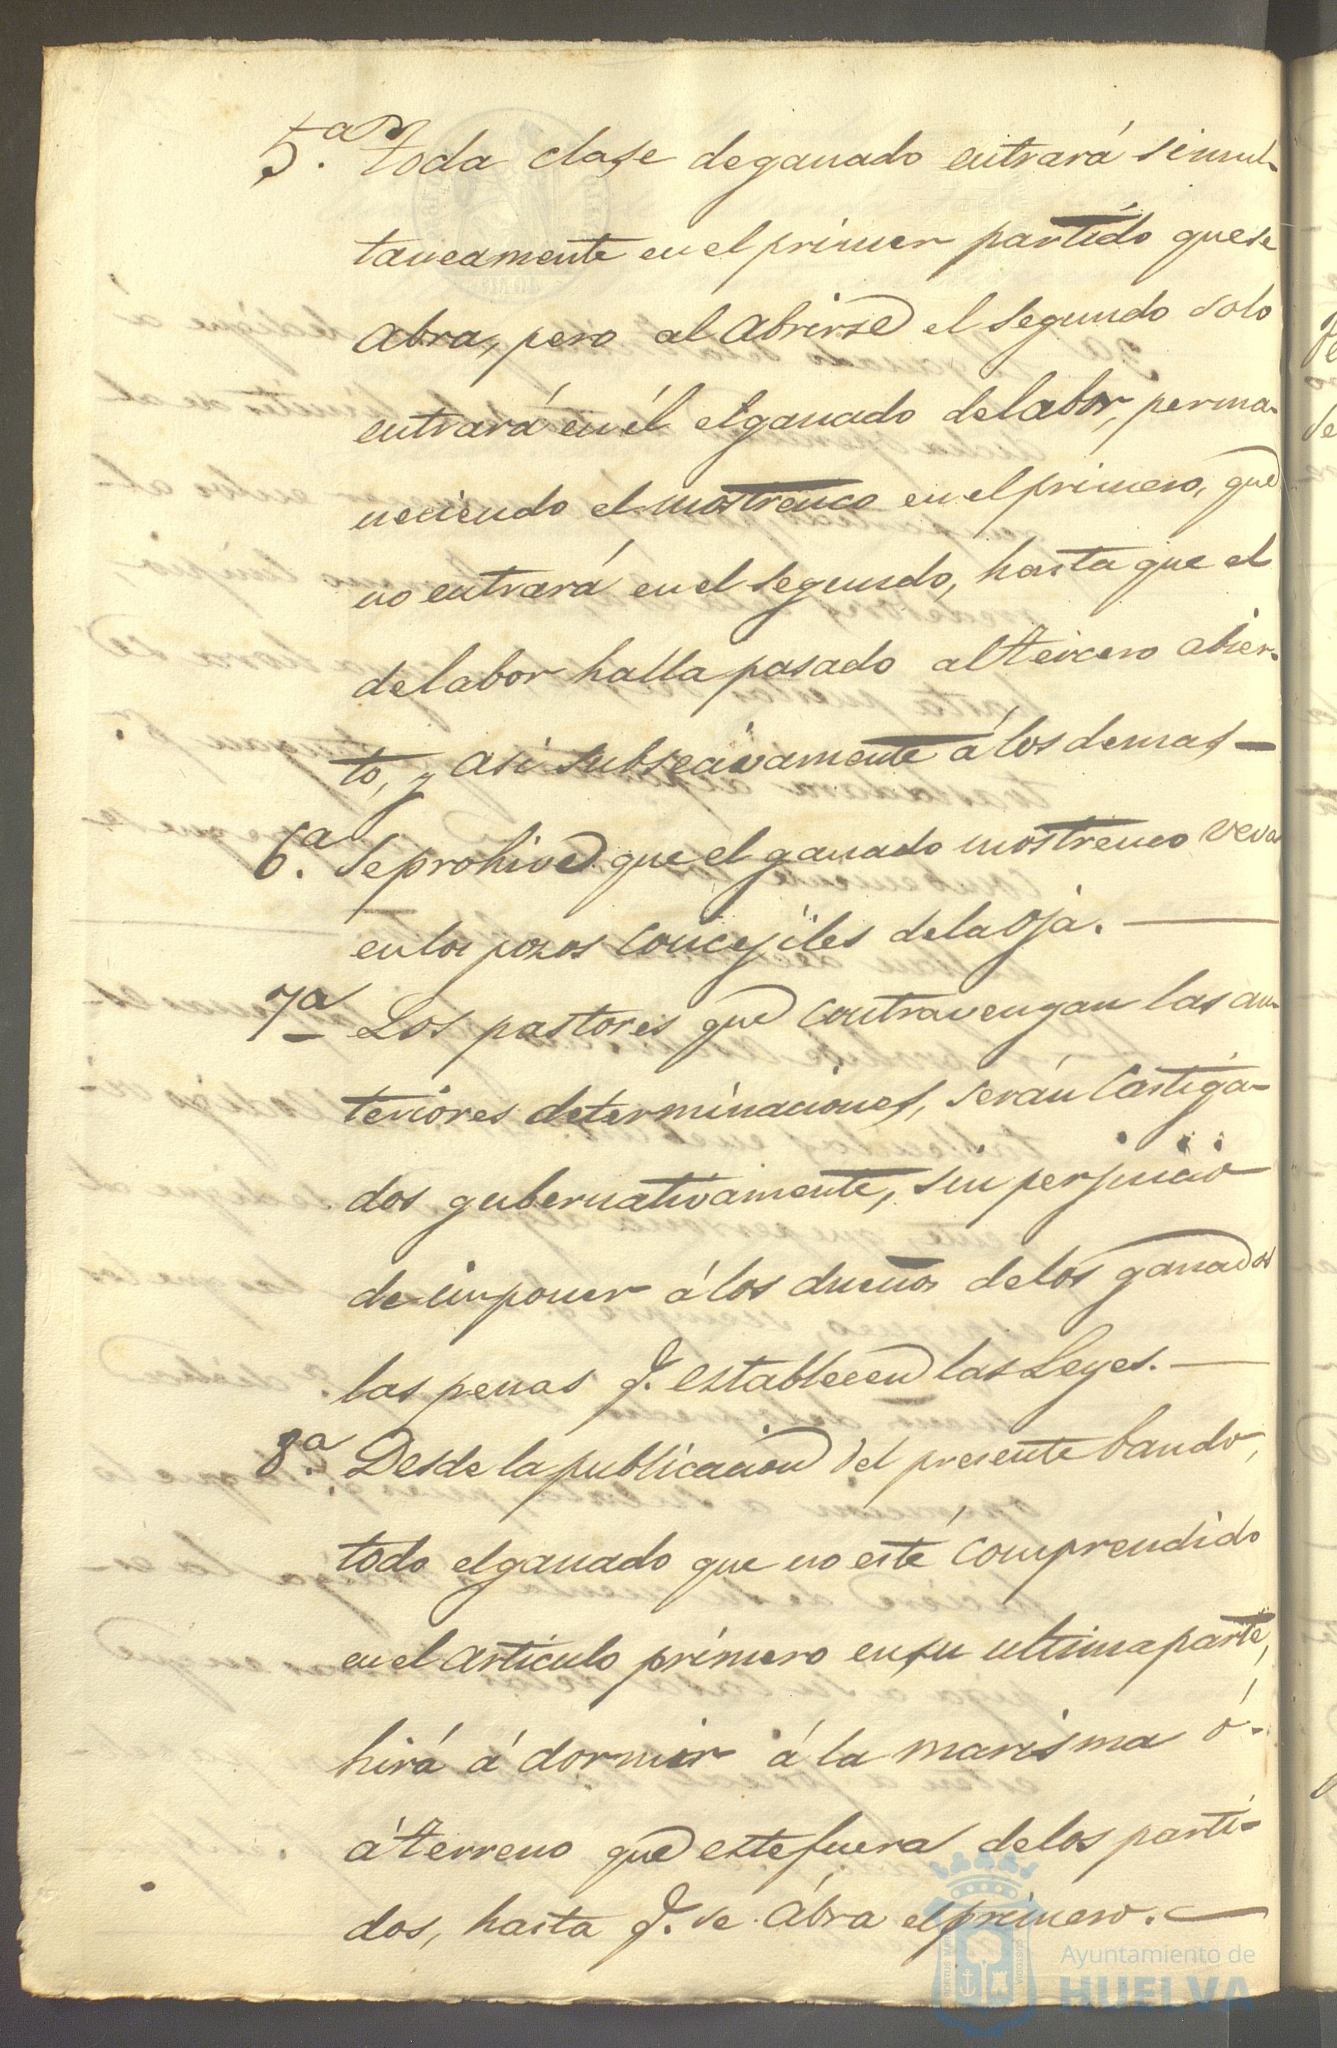 5.ª Toda clase de ganado entrará simul-
taneamente en el primer partido que se
abra, pero al abrirse el segundo solo
entrará en él el ganado de labor, perma-
neciendo el mostrenco en el primero, que
no entrará en el segundo, hasta que el
de labor halla pasado al tercero abier-
to, y asi subsecivamente á los demas —
6.ª Se prohive que el ganado mostrenco veva
en los pozos concejiles de la Oja. —
7ª Los pastores que contravengan las an-
teriores determinaciones, serán castiga-
dos gubernativamente, sin perjuicio
de imponer á los dueños de los ganados
las penas q. establecen las Leyes. —
8.ª Desde la publicacion del presente bando,
todo el ganado que no esté comprendido
en el articulo primero en su ultima parte,
hirá á dormir á la marisma ó-
á terreno que este fuera de los parti-
dos, hasta q. se abra el primero. —
Ayuntamiento de
HUELVA